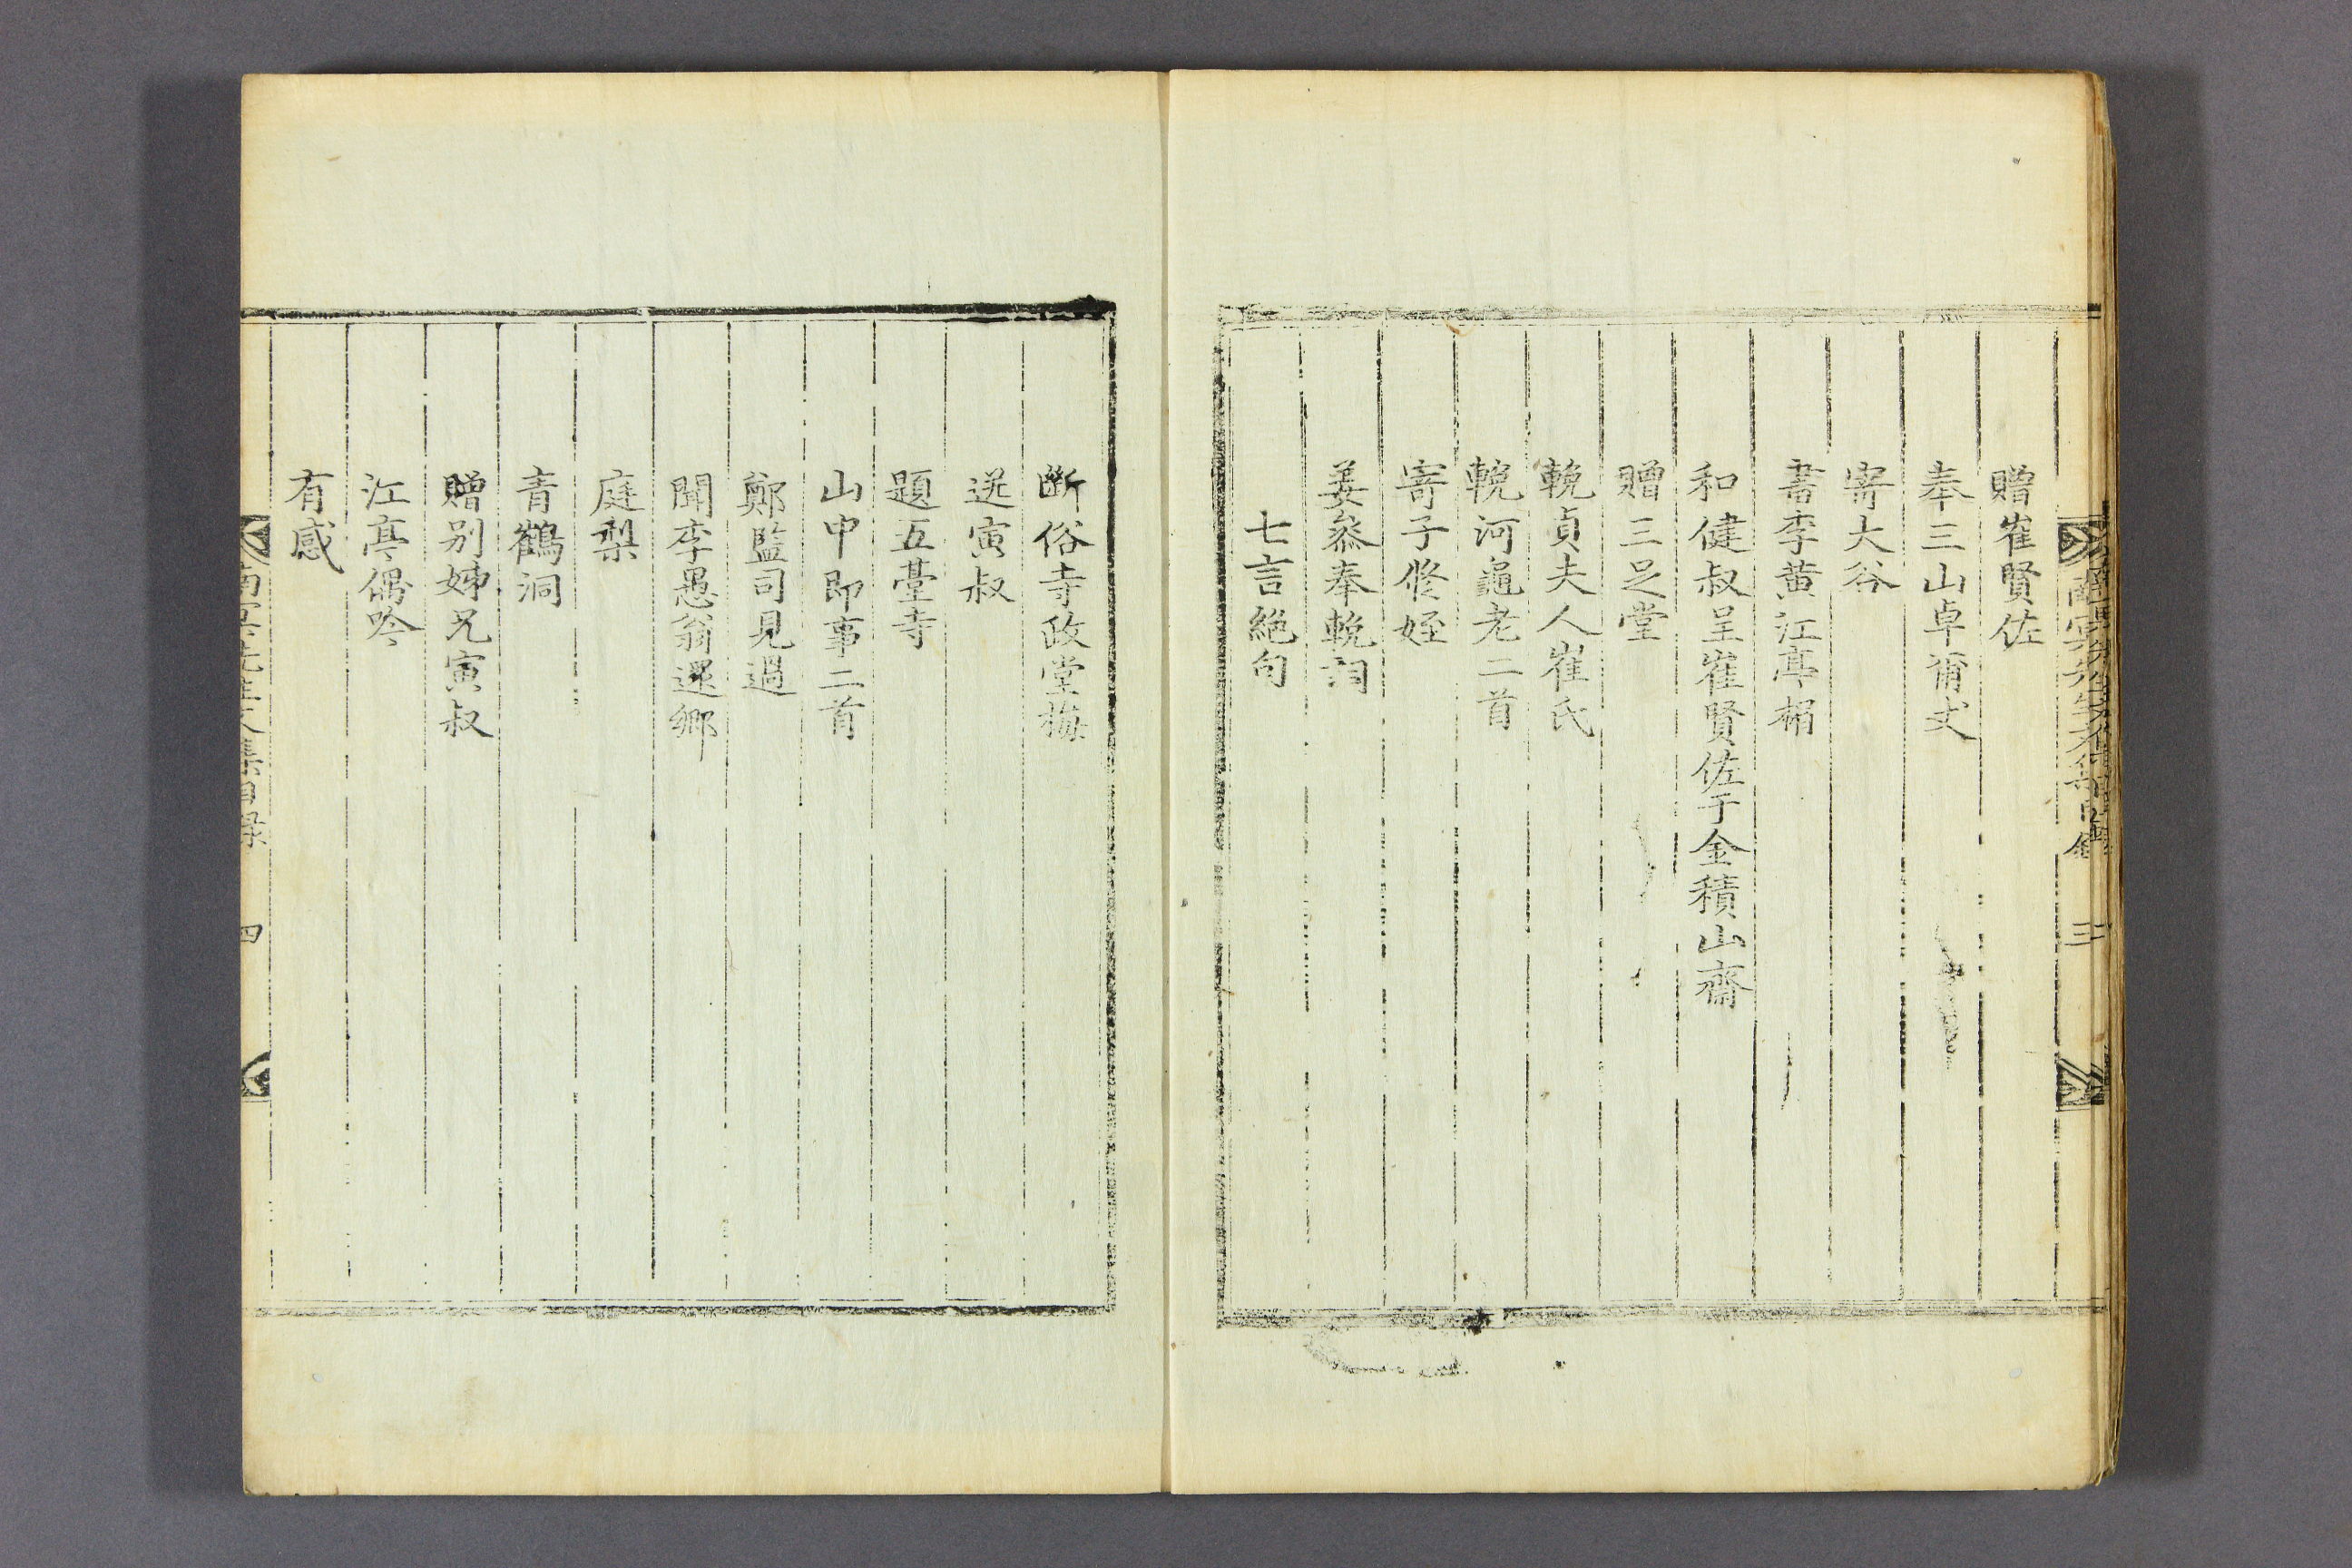 贈崔賢佐
奉三山卓甫丈
寄大谷
書李黃江亭楣
和健叔呈崔賢佐于金積山齋
贈三足堂
輓貞夫人崔氏
輓河龜老二首
寄子修姪
姜叅奉輓詞
七言絕句
斷俗寺政堂梅
送寅叔
題五臺寺
山中即事二首
鄭監司見過
聞李愚翁還鄉
庭梨
青鶴洞
贈別姊兄寅叔
江亭偶吟
有感
南冥先生文集目錄 四